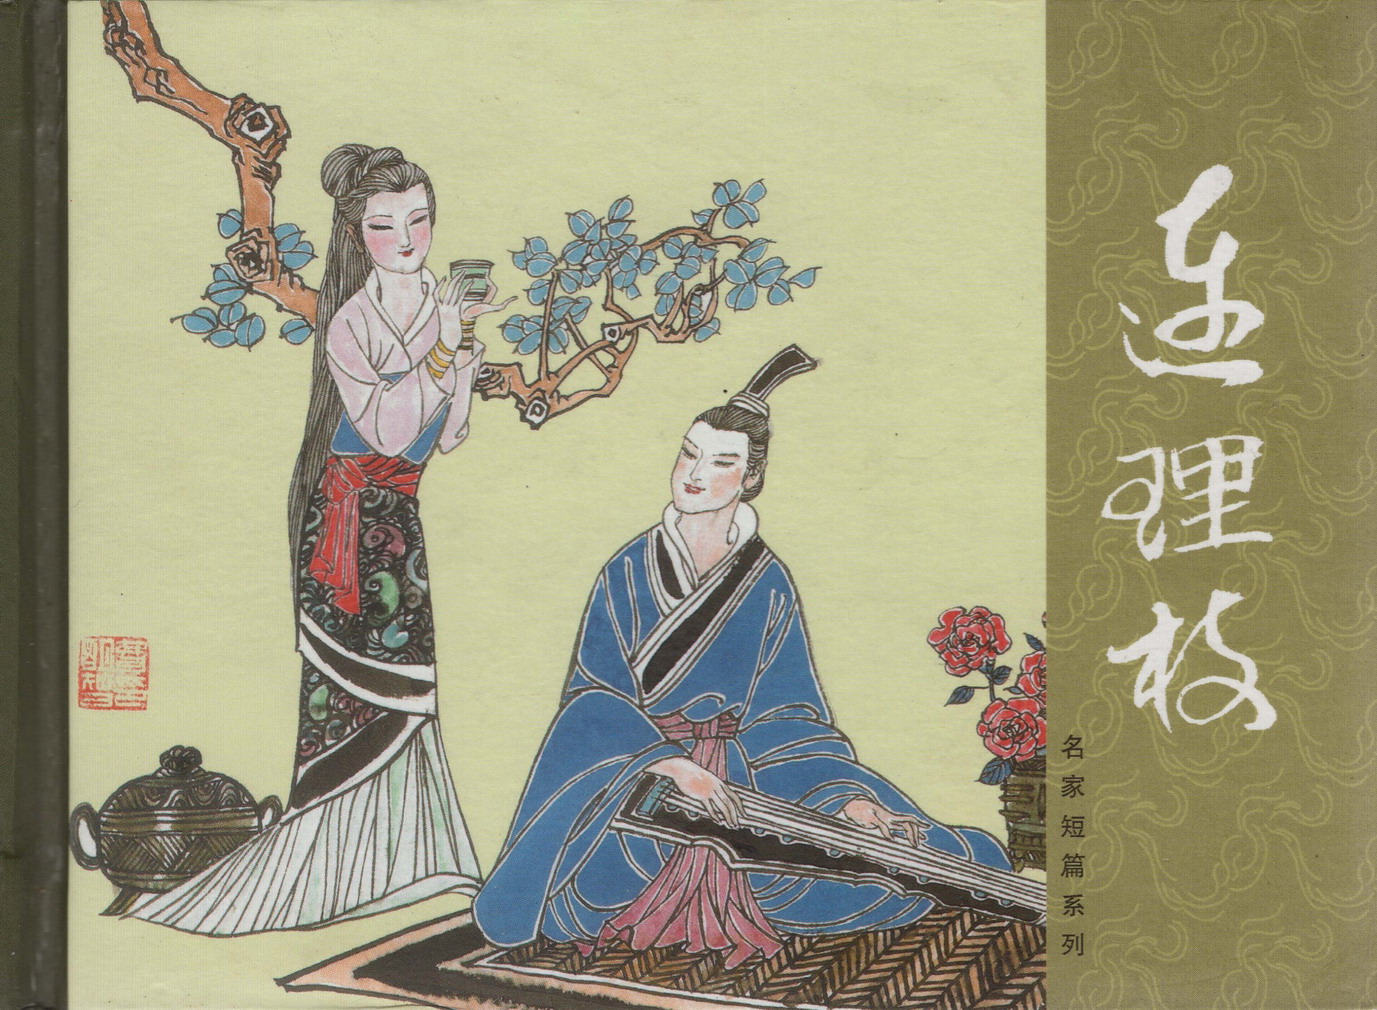 连理枝
名家短篇系列